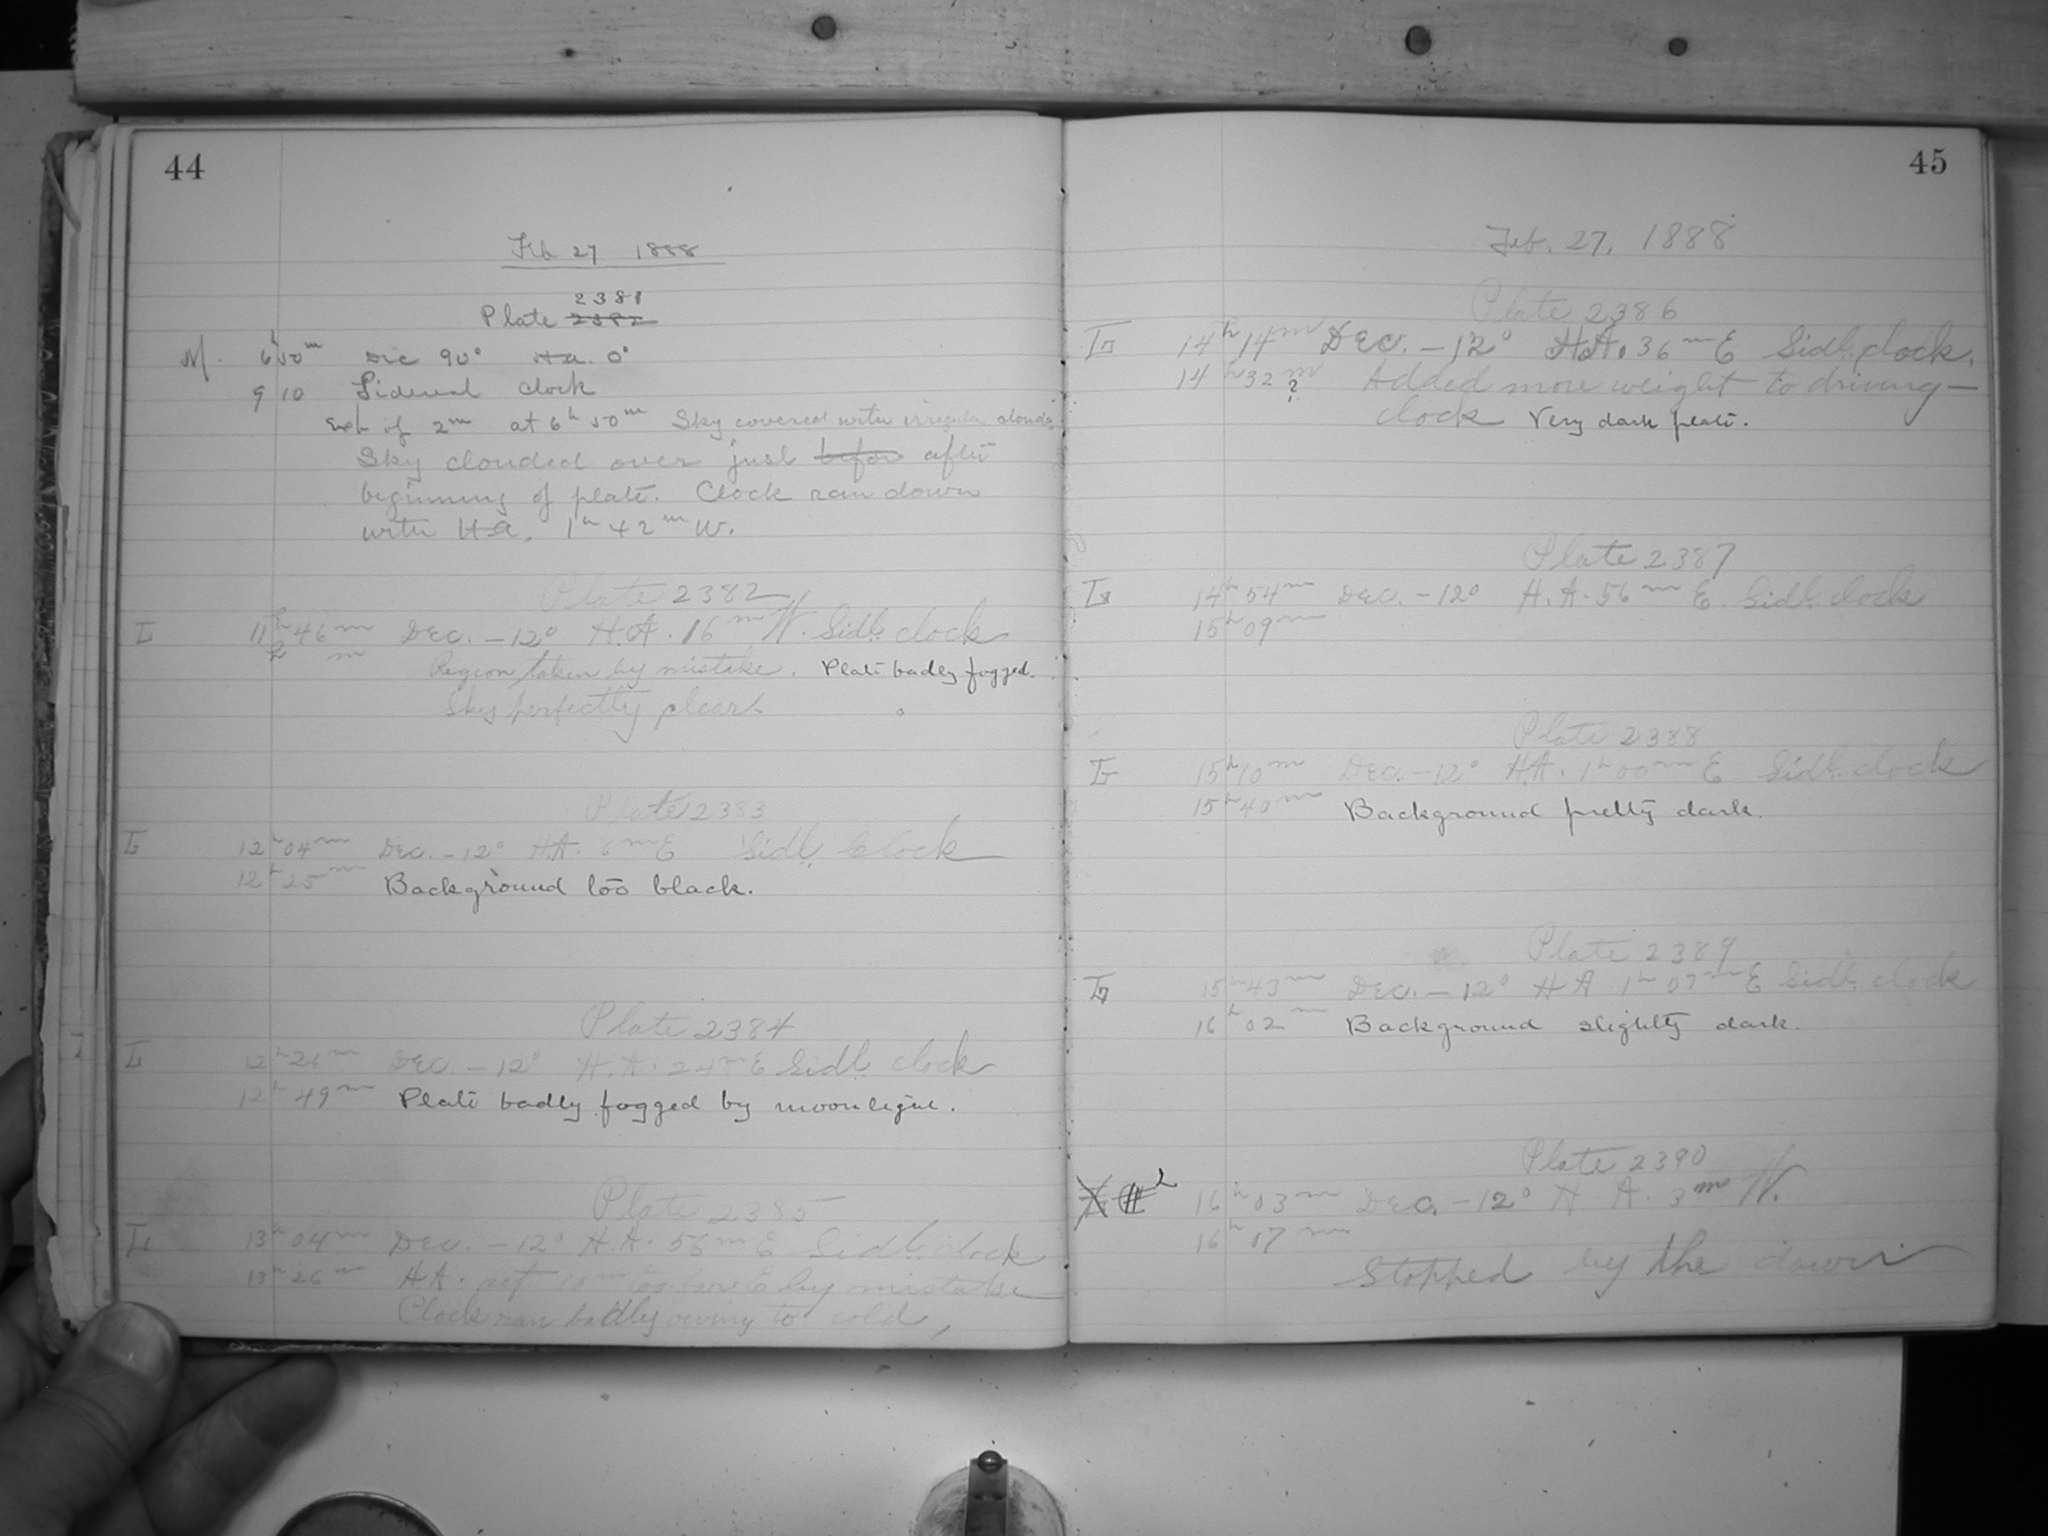 44
Feb 27 1888
2381
Plate 2382
M. 6h 50m Dec 90° H.a. 0°
9 10 Sidereal clock
Exp of 2m at 6h 50m Sky covered with irregular clouds.
Sky clouded over just before after
beginning of plate. Clock ran down
with H.a. 1h 42m W.
Plate 2382
11h 46m Dec. -12° H.A. 16m W. Sidl. clock
h m
Region taken by mistake. Plate badly fogged.
Sky perfectly clear.
Plate 2383
12h 04m Dec. -12° H.A. 6m E Sidl. Clock
12h 25m Background too black.
Plate 2384
12h 26m Dec. -12° H.A. 24m E Sidl. clock
12h 49m Plate badly fogged by moonlight.
Plate 2385
13h 04m Dec. -12° H.A. 56m E Sidl. clock
13h 26m H.A. set 10m too far E by mistake
Clock ran badly owing to cold,
45
Feb. 27, 1888
Plate 2386
14h 14m Dec. -12° H.A. 36m E Sidl. clock.
14h 32m ? Added more weight to driving-
clock Very dark plate.
Plate 2387
14h 54m Dec. -12° H.A. 56m E. Sidl. clock
15h 09m
Plate 2388
15h 10m Dec. -12° H.A. 1h 00m E Sidl. clock
15h 40m Background pretty dark.
Plate 2389
15h 43m Dec. -12° H A 1h 07m E Sidl. clock
16h 02m Background slightly dark.
Plate 2390
16h 03m Dec. -12° H. A. 3m W.
16h 07m
Stopped by the dawn